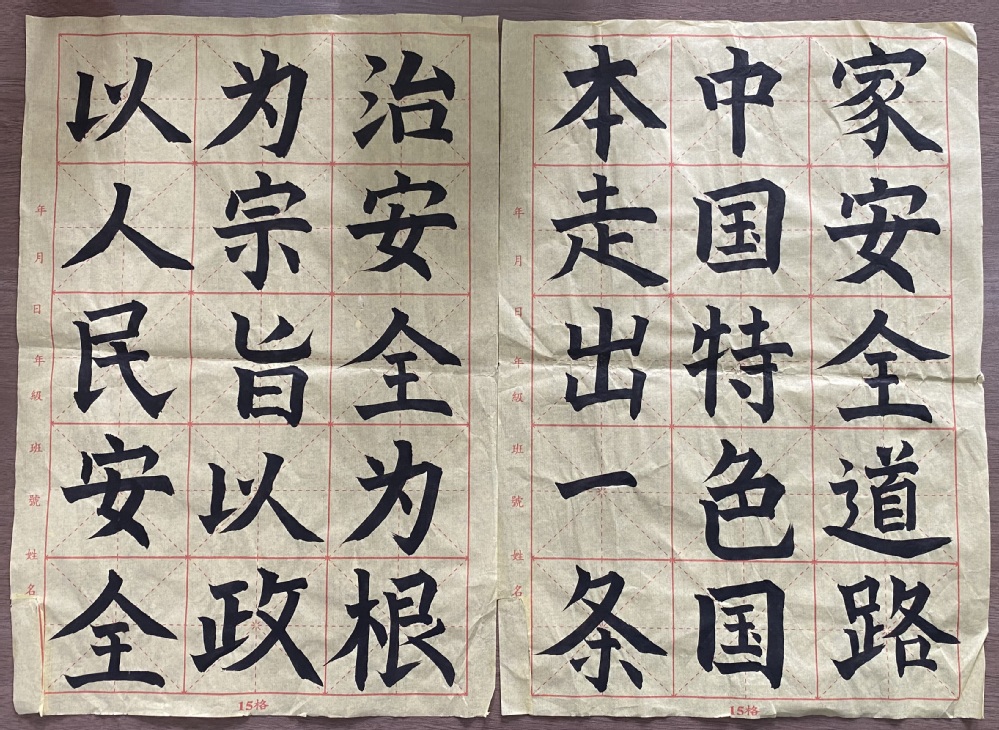 以人民安全
为宗旨以政
治安全为根
本走出一条
中国特色国
家安全道路
年月日年級班號姓名
15格
年月日年級班號姓名
15格